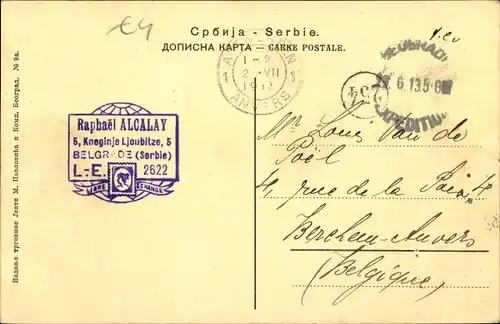 €4
Србија - Serbie.
ДОПИСНА КАРТА — CARKE POSTALE.
ANTWERPEN
1-2
2 VII
ANVERS
234
BEOGRAD
6 13.5
EXPEDITION
Raphaël ALCALAY
5, Kneginje Ljoubitze, 5
BELGRADE (Serbie)
L.-E. 2622
LIBRE ECHANGE
Mr Louis Van de
Poël
4 rue de la Paix 4
Berchem-Anvers
(Belgique)
Издање трговине Јевте М. Павловића и Комп. Београд. № 9а.